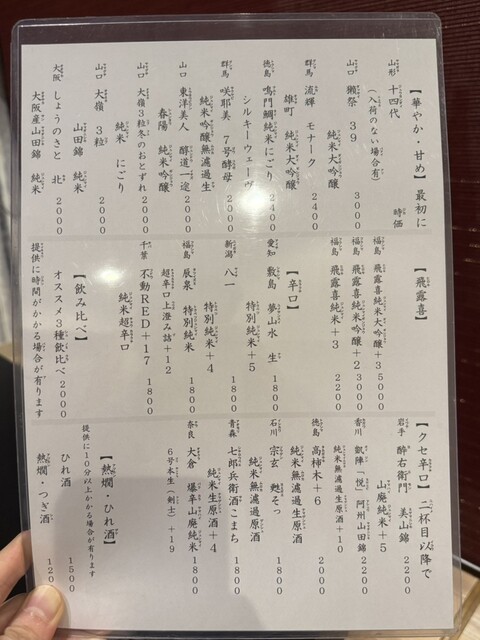 【華やか・甘め】最初に
山形 十四代 時価
（入荷のない場合有）
山口 獺祭 39 3000
純米大吟醸
群馬 流輝 モナーク 2400
雄町 純米大吟醸
徳島 鳴門鯛純米にごり 2400
シルキーウェーヴ
群馬 咲耶美 7号酵母 2000
純米吟醸無濾過生
山口 東洋美人 醇道一途 2000
春陽 純米吟醸
山口 大嶺3粒冬のおとずれ 2000
純米 にごり
山口 大嶺 3粒 2000
山田錦 純米
大阪 しょうのさと 北 2000
大阪産山田錦 純米
【飛露喜】
福島 飛露喜純米大吟醸+3 5000
福島 飛露喜純米吟醸+2 3000
福島 飛露喜特別純米+3 2200
【辛口】
愛知 敷島 夢山水 生 1800
特別純米+5
新潟 八一 1800
特別純米+4
福島 辰泉 特別純米 1800
超辛口上澄み詰+12
千葉 不動RED+17 1800
純米超辛口
【飲み比べ】
オススメ3種飲比べ 2000
提供に時間がかかる場合が有ります
【クセ辛口】二杯目以降で
岩手 酔右衛門 美山錦 2200
山廃純米+5
香川 凱陣「悦」阿州山田錦 2200
純米無濾過生原酒+10
徳島 高柿木+6 2000
純米無濾過生原酒
石川 宗玄 甦そっ 1800
純米無濾過原酒
青森 七郎兵衛酒こまち 1800
純米生原酒+4
奈良 大倉 爆辛山廃純米 1800
6号本生（剣士）+19
【熱燗・ひれ酒】
提供に10分以上かかる場合が有ります
ひれ酒 1500
熱燗・つぎ酒